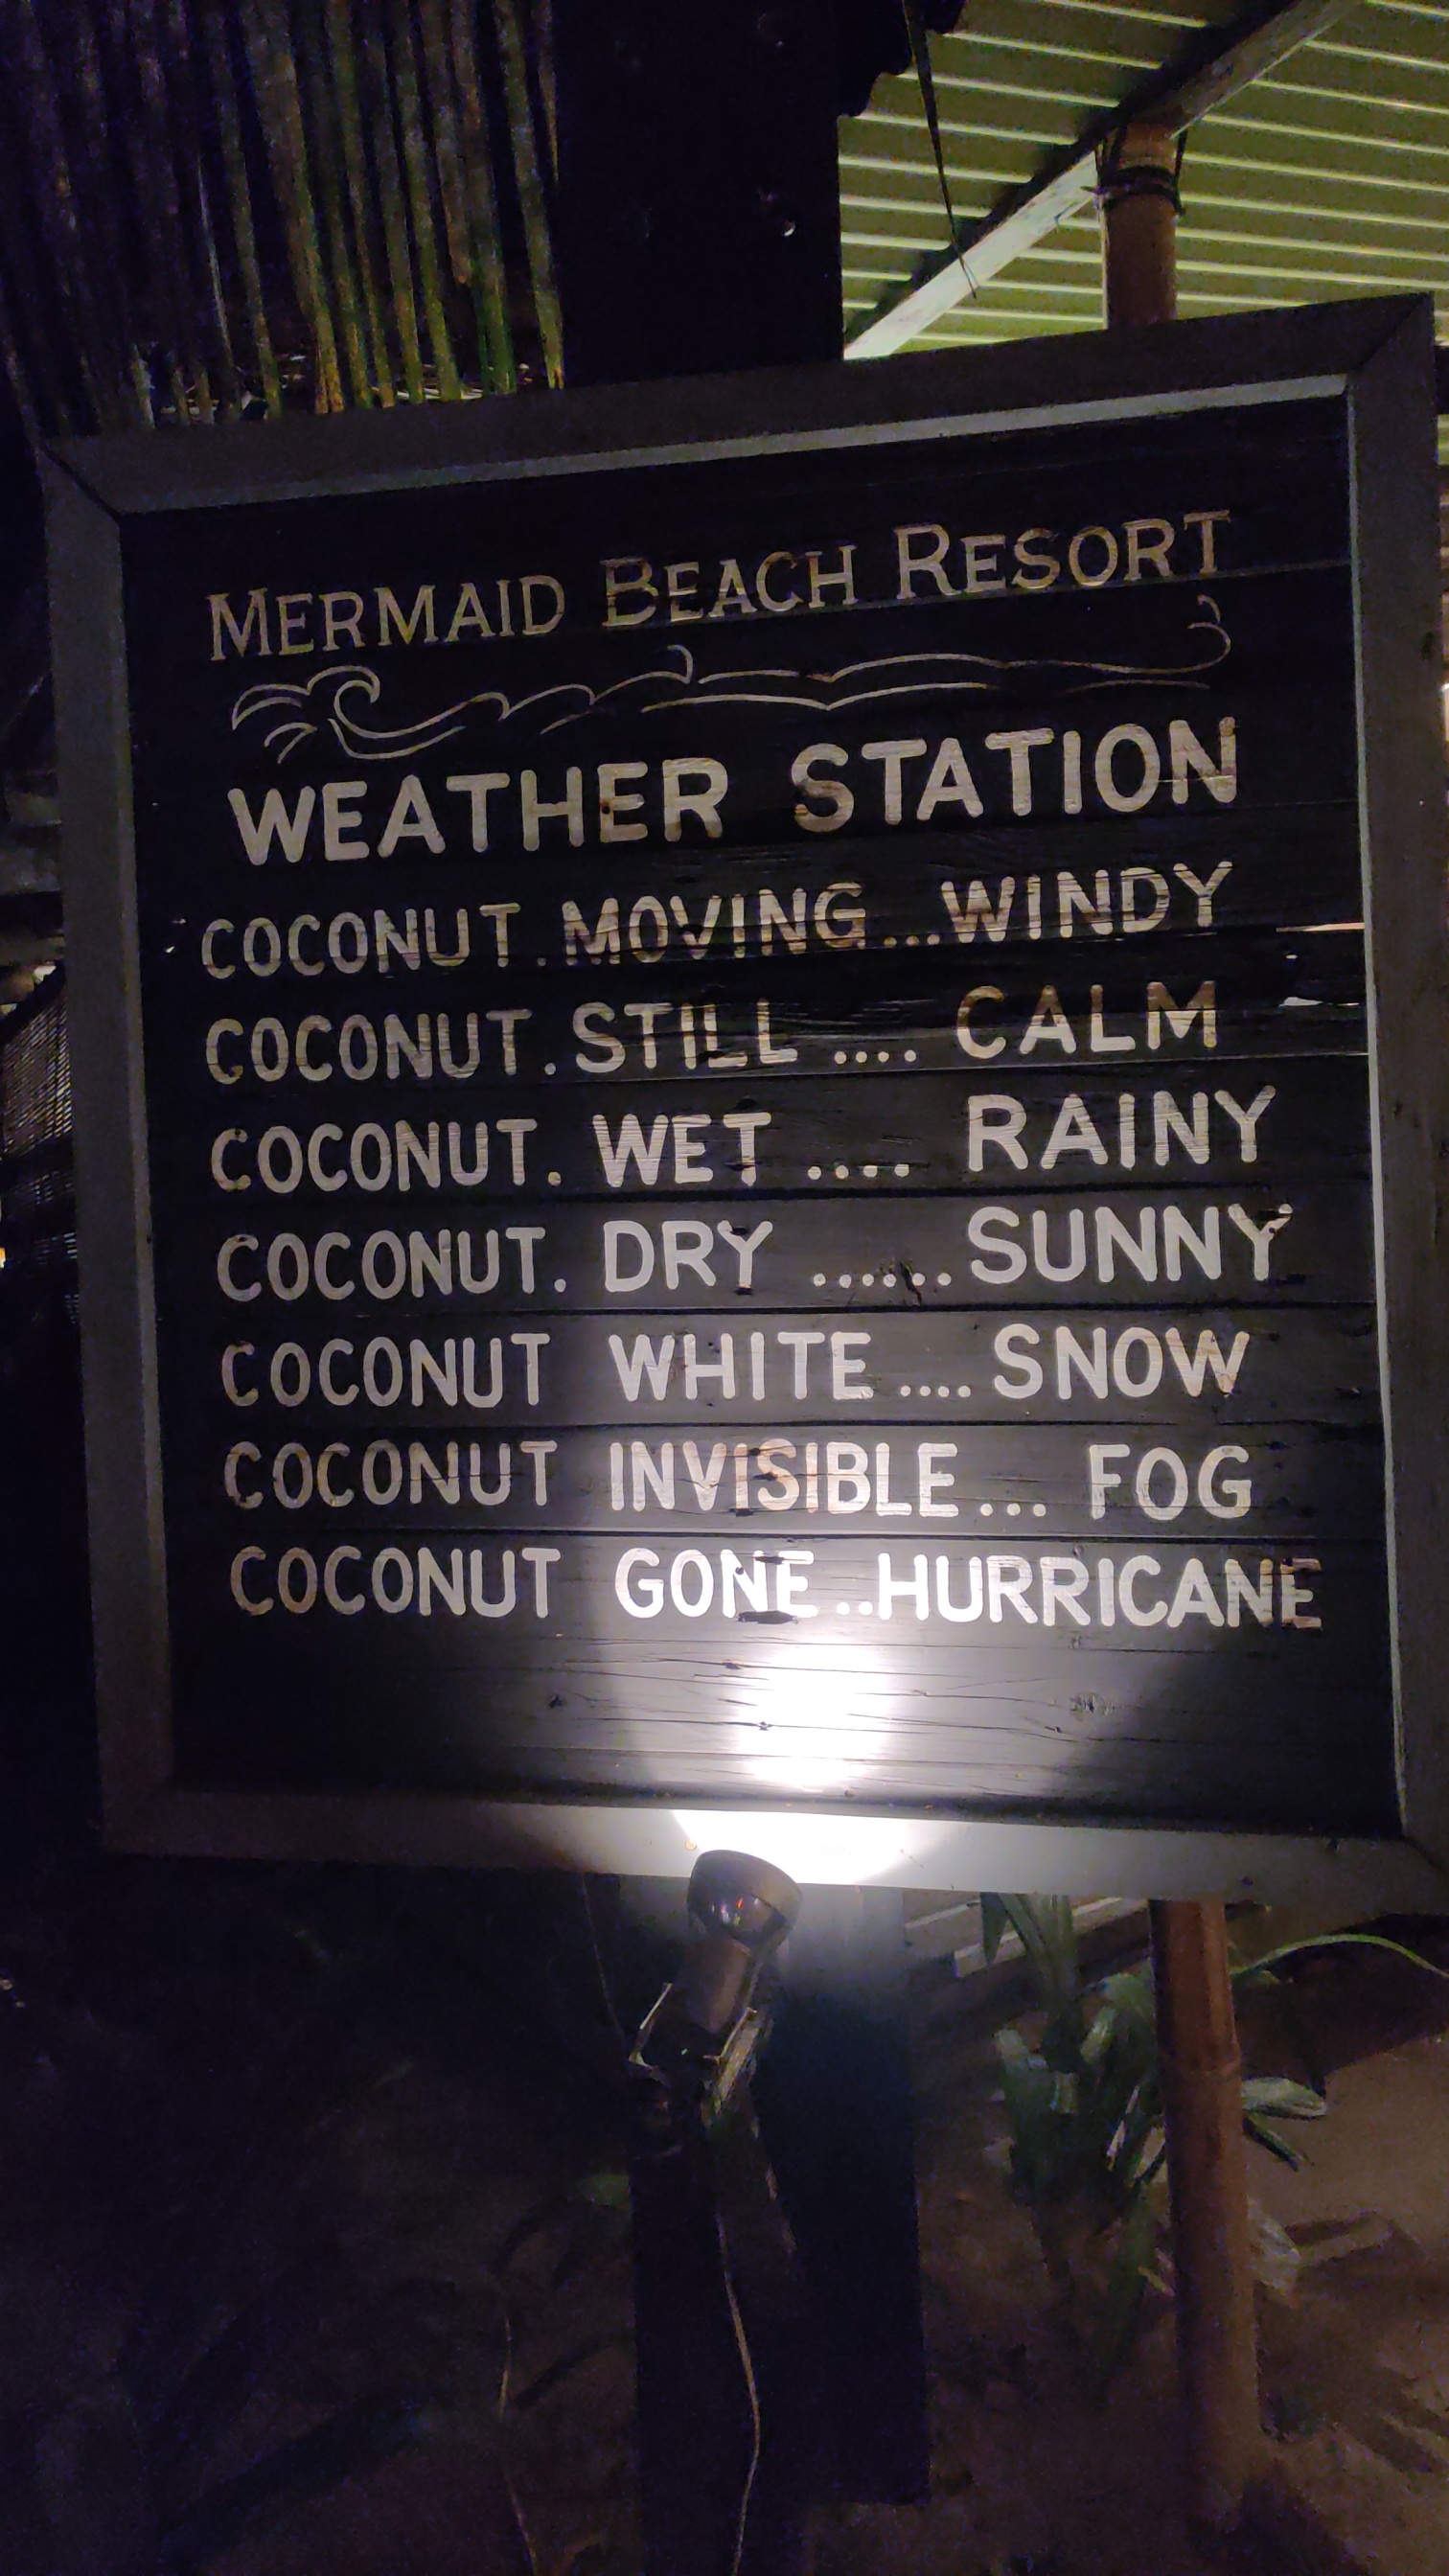 MERMAID BEACH RESORT
WEATHER STATION
COCONUT.MOVING...WINDY
COCONUT.STILL .... CALM
COCONUT. WET .... RAINY
COCONUT. DRY ......SUNNY
COCONUT WHITE....SNOW
COCONUT INVISIBLE... FOG
COCONUT GONE..HURRICANE